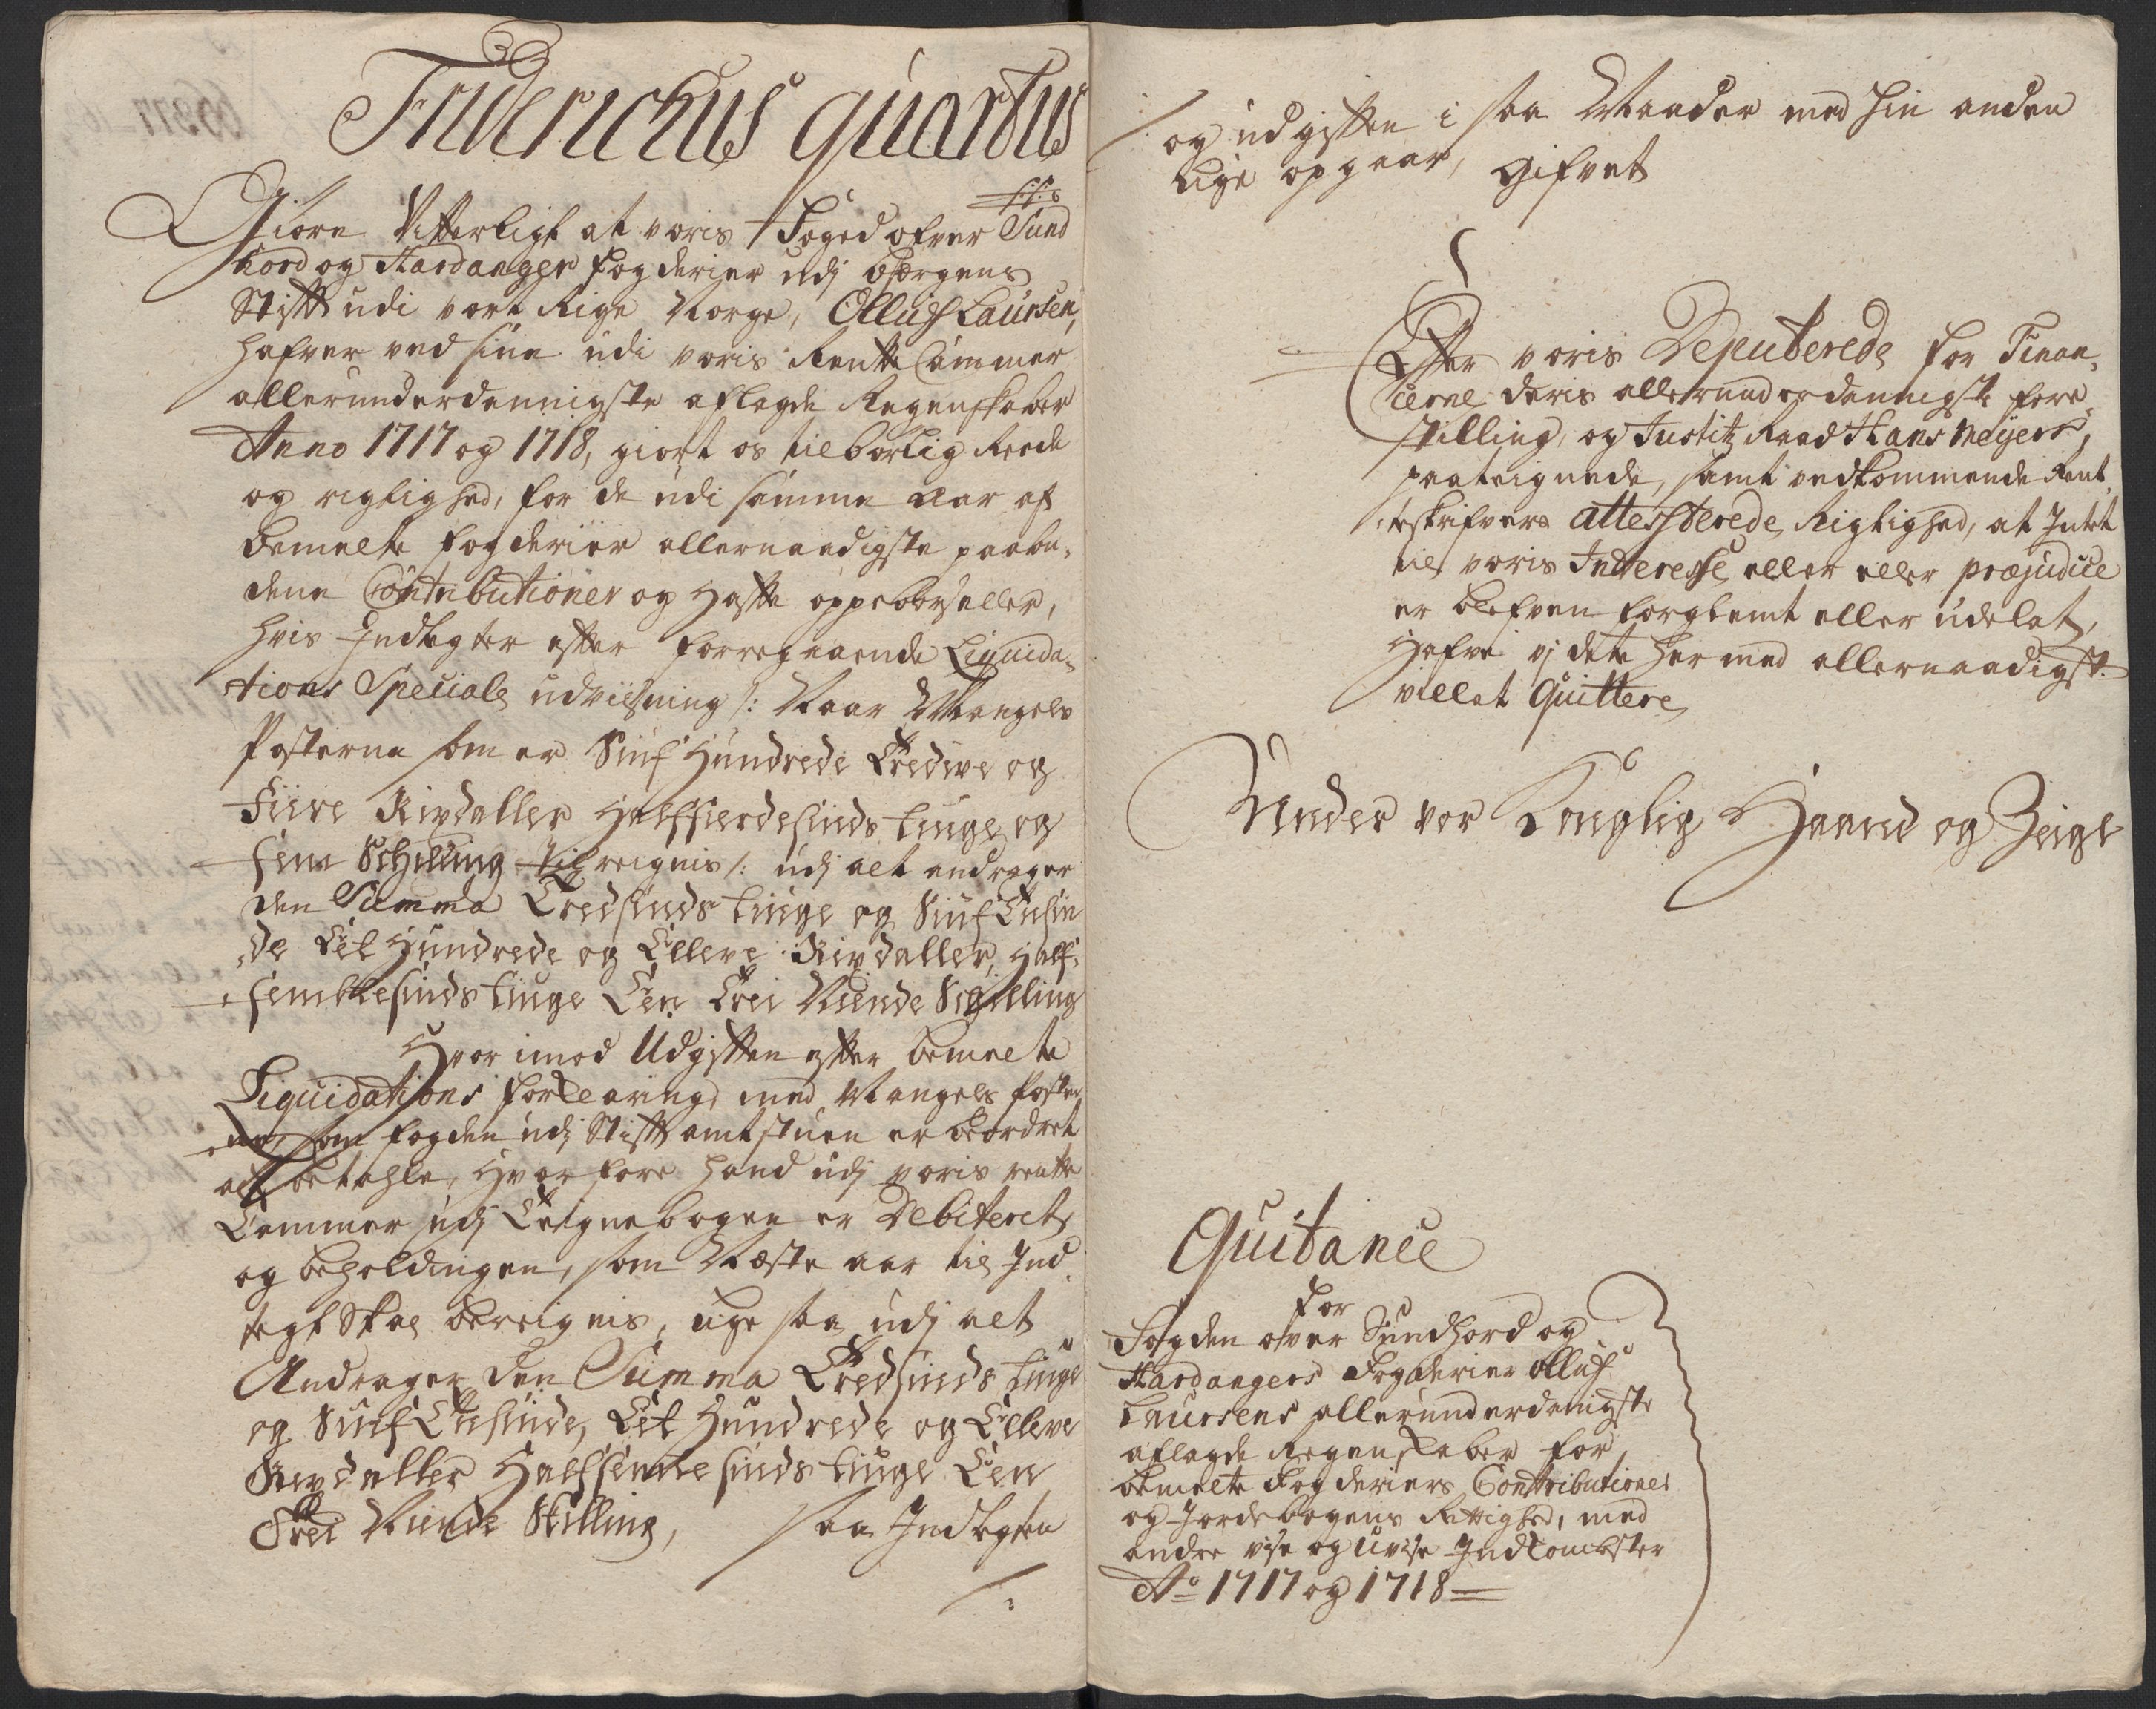 Friderichus quartus
Giøre Vitterligt at voris Foged ofver Sund
hord og Hardanger fogderier udj Bergens
Stift udi vort Rige Norge, Olluf Laursen,
hafver ved sine udi voris Rentte Cammer
allerunderdannigste aflagde Regenskaber
Anno 1717 og 1718, giort os tilbørlig Reede
og rigtighed, for de udi samme aar af
bemelte fogderier allernaadigste paabu,
dene Contributioner og Haffte oppebørseller,
hvis Indtegter efter forregaaende Liquida,
tions Specials udviisning /: Naar Mangels
Posterne som er Siuf Hundrede Tredeve og
Fiire Rixdaller Halffierdesinds tiuge og
fem Schilling Tilreignis /: udj alt andrager
den Summa Tredsinds tiuge og Siuf Tusin
de Eet Hundrede og Elleve Rixdaller, Half,
femttesinds tiuge Een Trei Niende Schilling
Hvor imod Udgifften efter bemelte
Liquidations forklaring, med Mangels poster
ne, som fogden udj Stiftamtstuen er beordret
at betahle, hvorfore hand udj voris rentte
Cammer udj Teignebogen er Debiteret,
og beholdingen, som Næste aar til Ind
tegt Skal bereignis, lige saa udj alt
Andrager den Summa Tredsinds tiuge
og Siuf Tusinde, Eet Hundrede og Elleve
Rixdaller Halffemtesinds tiuge Een
Trei Niende Skilling, saa Indtegten
/:
og udgiften i saa Maader med hin anden
lige opgaar, Gifvet
Efter voris Deputerede for Finan,
cerne deris allerunderdannigste fore,
stilling, og Justitz Raad Hans Meyers,
paateignede, samt vedkommende Rent,
teskrifvers attesterede Rigtighed, at Intet
til voris Interesse eller præjudice
er blefven forglemt eller udelat,
Hafve vj dete hermed allernaadigst
villet Quittere
Under vor Konglig Haand og Zeigl
Quitance
for
Fogden over Sundhord og
Hardangers Fogderier Olluf
Laursens allerunderdanigste
aflagde Regenskaber for
bemelte Fogderiers Contributioner
og Jordebogens Rettighed, med
andre vise og uvise Indkombster
Ao 1717 og 1718